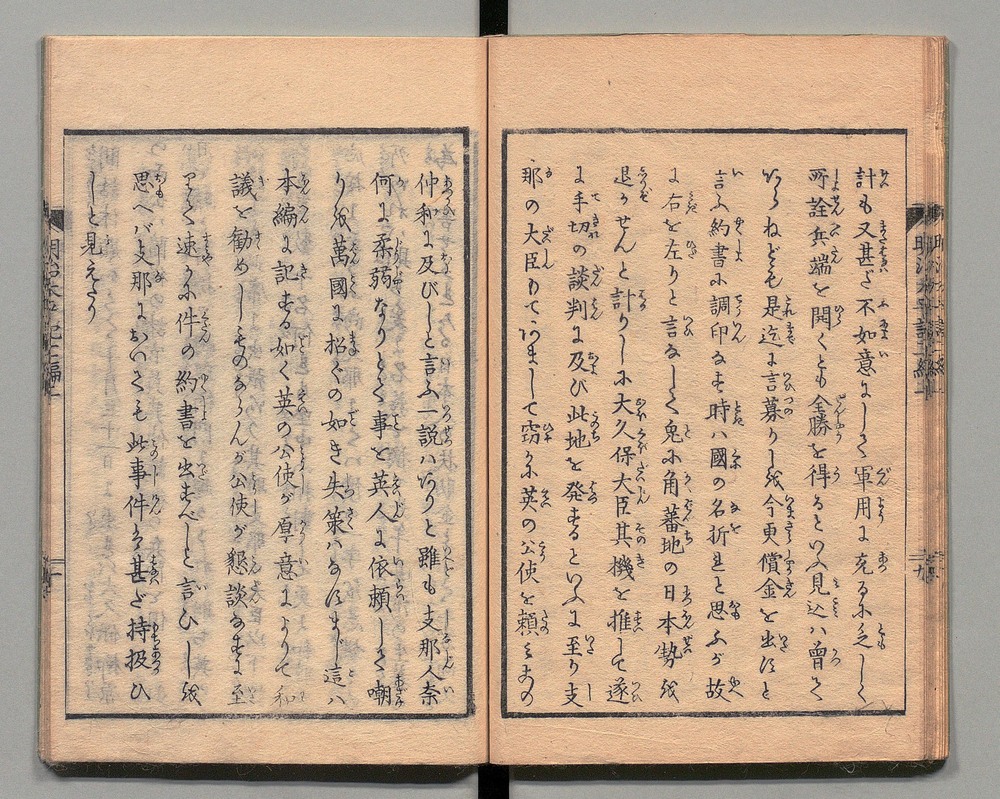 計も又甚だ不如意にして軍用に充るに乏しく
所詮兵端を開くとも全勝を得るといふ見込ハ曾て
ねども是迄に言募りし我今更償金を出すと
言ふ約書に調印なす時ハ國の名折と思ふが故
に右を左りと言なして兎に角蕃地の日本勢を
退かせんと計りしに大久保大臣其機を推して遂
に手切の談判に及び此地を発するといふに至り支
那の大臣もて窃に英の公使を頼
仲和に及びしと言ふ一説ハありと雖も支那人奈
何に柔弱なりとて事を英人に依頼して嘲
りを萬國に招くの如き失策ハなすまじ這ハ
本編に記する如く英の公使が厚意よりして和
議を勧めしものならんが公使が懇談なすに至
りて速に件の約書を出すべしと言ひしを
思へバ支那においても此事件にハ甚だ持扱ひ
しと見えたり